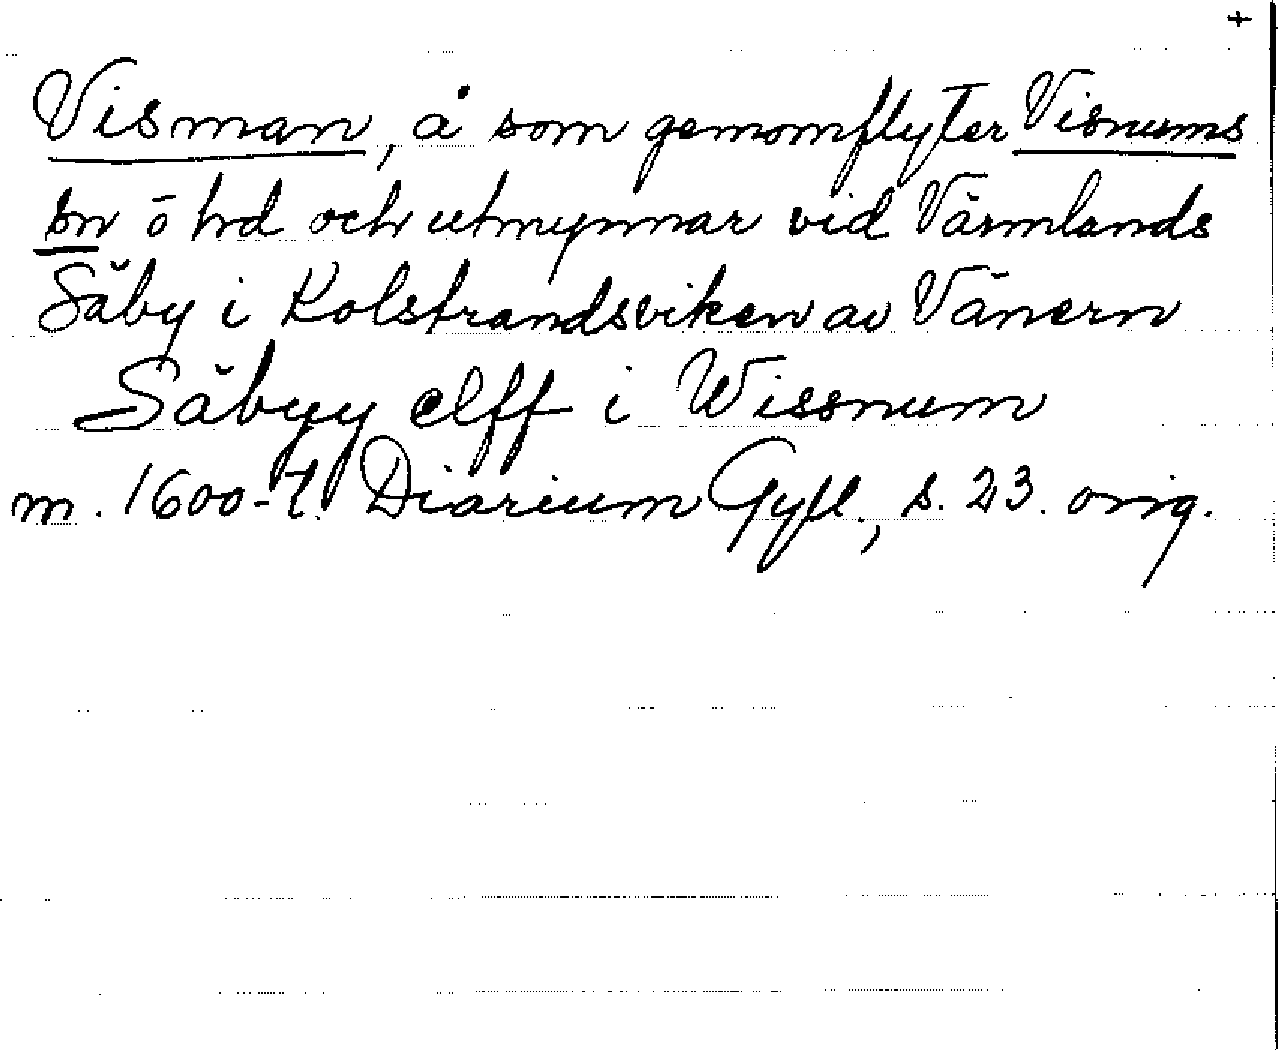 +
Visman, å som genomflyter Visnums
sn ö hd och utmynnar vid Värmlands
Säby i Kolstrandsviken av Vänern
Säbyy elff i Wissnum
m. 1600-t. Diarium Gyll., s. 23. orig.